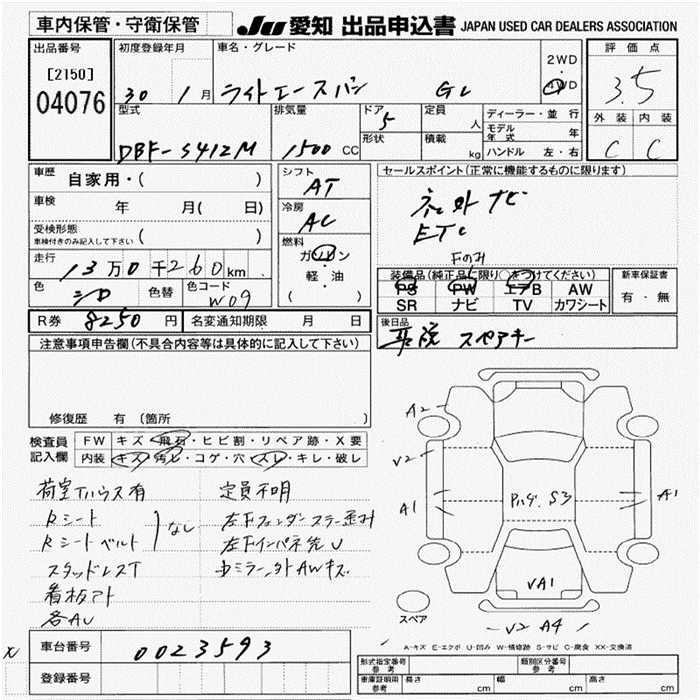 車内保管・守衛保管
JU 愛知 出品申込書 JAPAN USED CAR DEALERS ASSOCIATION
出品番号
[2150]
04076
初度登録年月
30 1月
車名・グレード
ライトエースバン GL
2WD
・
4WD
評価点
3.5
外装 内装
C C
型式
DBF-S412M
排気量
1500 CC
ドア
5
形状
定員
人
積載
kg
ディーラー・並行
モデル年式 年
ハンドル 左・右
車歴
自家用・( )
車検
年 月( 日)
受検形態
車検付きのみ記入して下さい ( )
走行
13万0千260km
色
シロ
色替
色コード
W09
R券 8250円
名変通知期限 月 日
シフト
AT
冷房
AC
燃料
ガソリン
軽・油
( )
セールスポイント(正常に機能するものに限ります)
社外ナビ
ETC
Fのみ
装備品(純正品に限り○をつけてください)
PS PW エアB AW
SR ナビ TV カワシート
新車保証書
有・無
後日品
スペアキー
注意事項申告欄(不具合内容等は具体的に記入して下さい)
修復歴 有 (箇所
検査員記入欄
FW キズ・飛石・ヒビ割・リペア跡・X要
内装 キズ・汚レ・コゲ・穴・スレ・キレ・破レ
荷室Tハウス有
Rシート
Rシートベルト
なし
スタッドレスT
看板アト
各AU
定員不明
左Fフェンダーステー歪み
左Fインパネ先U
ドミラー、外AWキズ
A2
V2
A1
A1
S3
VA1
V2 A4
スペア
A-キズ E-エクボ U-凹み W-補修跡 S-サビ C-腐食 XX-交換済
X
車台番号
0023593
登録番号
型式指定番号 参考
類別区分番号 参考
車庫証明用 参考
長さ cm
幅 cm
高さ cm